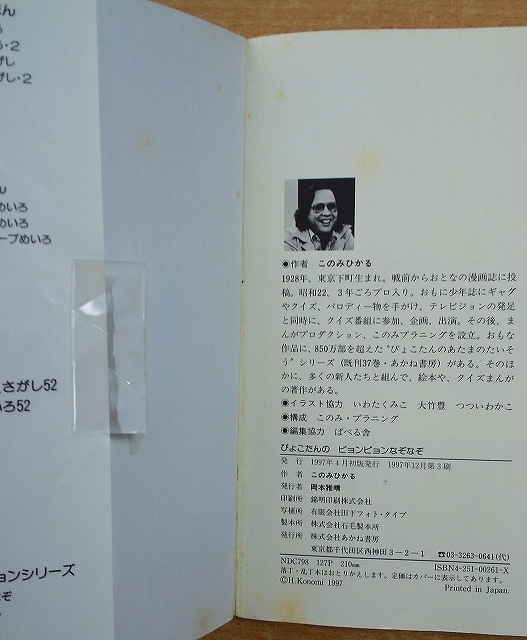 ほん
ろ・2
がし
がし・2
めいろ
めいろ
ープめいろ
さがし52
いろ52
ョンシリーズ
なぞ
◉作者 このみひかる
1928年、東京下町生まれ。戦前からおとなの漫画誌に投
稿。昭和22、3年ごろプロ入り。おもに少年誌にギャグ
やクイズ、パロディー物を手がけ、テレビジョンの発足
と同時に、クイズ番組に参加、企画、出演。その後、ま
んがプロダクション、このみプラニングを設立。おもな
作品に、850万部を超えた“ぴょこたんのあたまのたいそ
う”シリーズ(既刊37巻・あかね書房)がある。そのほ
かに、多くの新人たちと組んで、絵本や、クイズまんが
の著作がある。
◉イラスト協力 いわたくみこ 大竹豊 つついわかこ
◉構成 このみ・プラニング
◉編集協力 ばべる舎
ぴょこたんの ピョンピョンなぞなぞ
発 行 1997年4月初版発行 1997年12月第3刷
作 者 このみひかる
発行者 岡本雅晴
印刷所 錦明印刷株式会社
写植所 有限会社田下フォト・タイプ
製本所 株式会社石毛製本所
発行所 株式会社あかね書房
東京都千代田区西神田3-2-1 ☎03-3263-0641(代)
NDC798 127P 210mm ISBN4-251-00261-X
落丁・乱丁本はおとりかえします。定価はカバーに表示してあります。
©H.Konomi 1997 Printed in Japan.